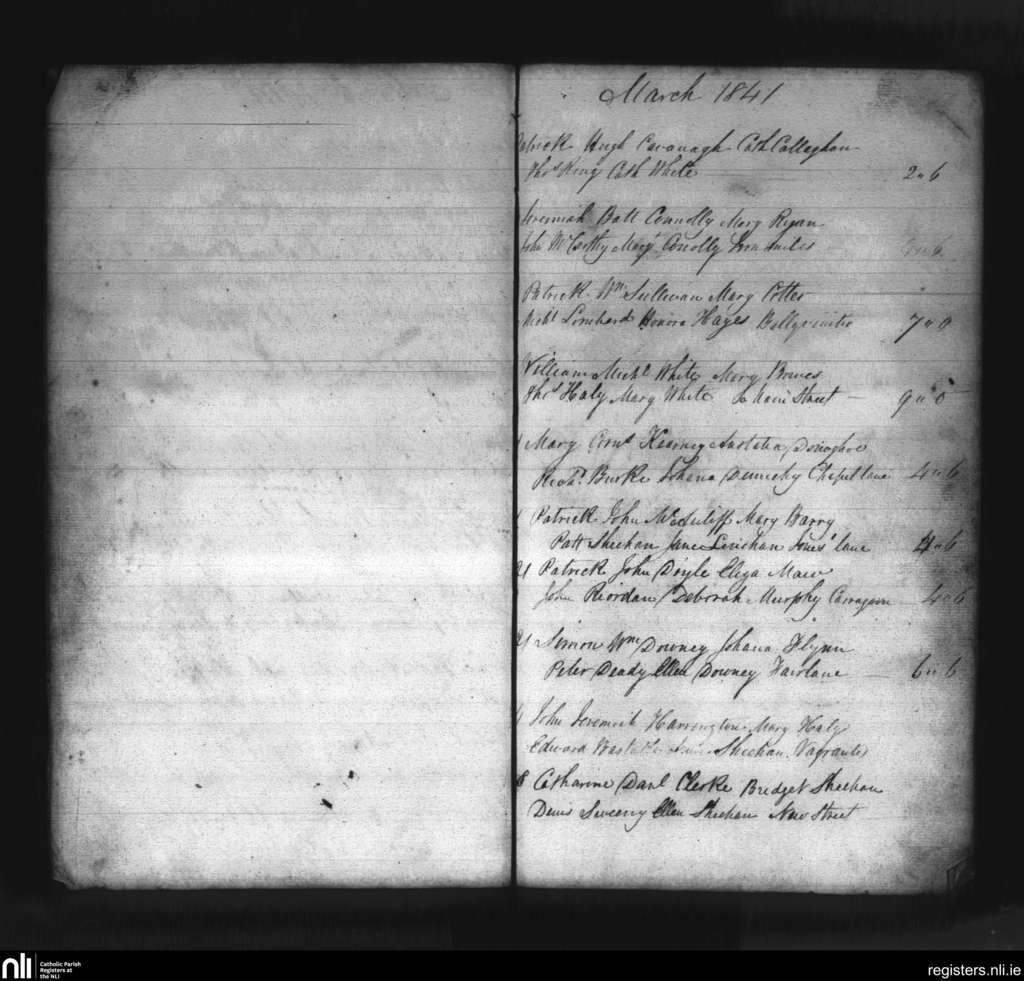 March 1841
Patrick Hugh Cavanagh Cath Callaghan
Thos King Cath White 2 " 6
Jeremiah Batt Connolly Mary Ryan
John McCarthy Mary Conolly " 6
Patrick Wm Sullivan Mary
Michl Lombard Honora Hayes 7 " 0
William Michl White Mary
Thos Haly Mary White Main Street 9 " 0
Mary Corns Kearney Donoghoe
Richd Burke Johana Chapel lane 4 " 6
Patrick John McAuliff Mary Barry
Patt Sheehan Jane Linehan lane 4 " 6
21 Patrick John Doyle Eliza
John Riordan Deborah Murphy 4 " 6
21 Simon Wm Downey Johana Flynn
Peter Deady Ellen Downey Fairlane 6 " 6
John Jeremiah Harrington Mary Haly
Edward Sheehan Vagrants
8 Catharine Danl Clerke Bridget Sheehan
Denis Sweeny Ellen Sheehan New Street
nli Catholic Parish
Registers at
the NLI
registers.nli.ie